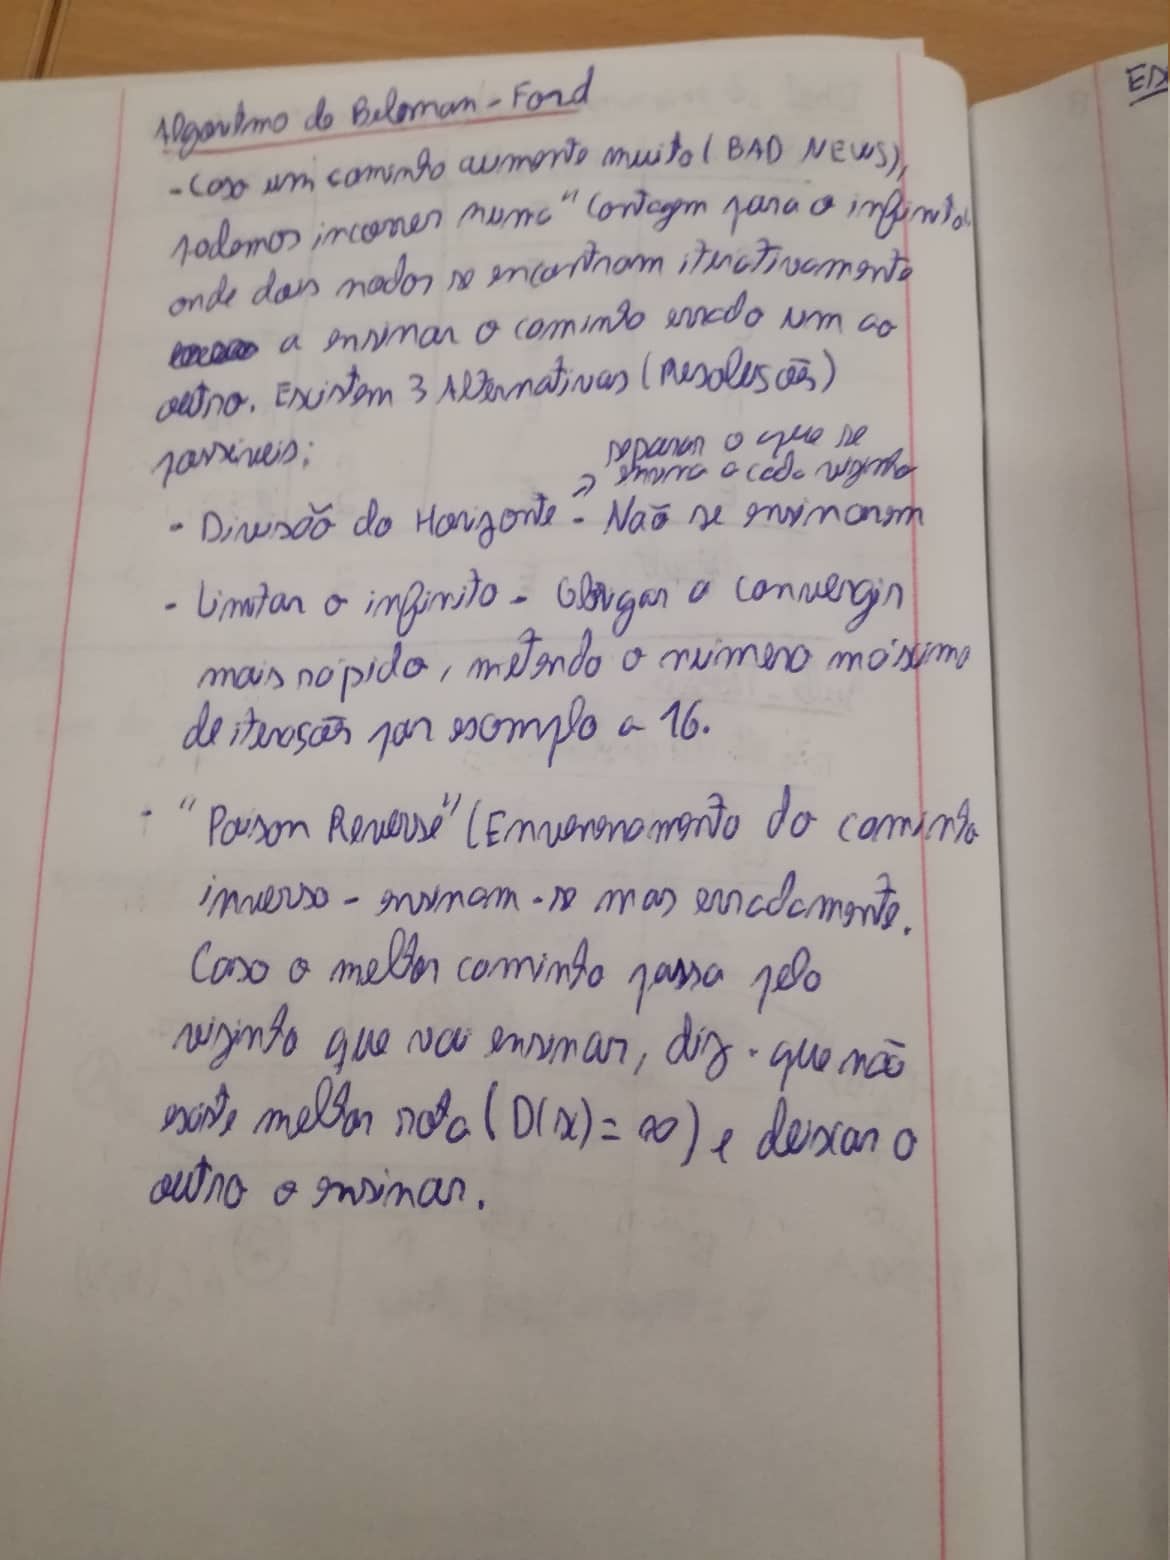 Algoritmo de Beloman-Ford
- Caso um caminho aumente muito (BAD NEWS),
podemos incorrer numa "Contagem para o infinito"
onde dois nodos se encontram iterativamente
a ensinar o caminho errado um ao
outro. Existem 3 Alternativas (Resoluções)
possíveis:
separar o que se
ensina a cada vizinho
- Divisão do Horizonte - Não se ensinarem
- Limitar o infinito - Obrigar a convergir
mais rápido, metendo o número máximo
de iterações por exemplo a 16.
- "Poison Reverse" (Envenenamento do caminho
inverso - ensinam-se mas erradamente.
Caso o melhor caminho passa pelo
vizinho que vai ensinar, diz-que não
existe melhor rota (D(x) = ∞) e deixar o
outro o ensinar.